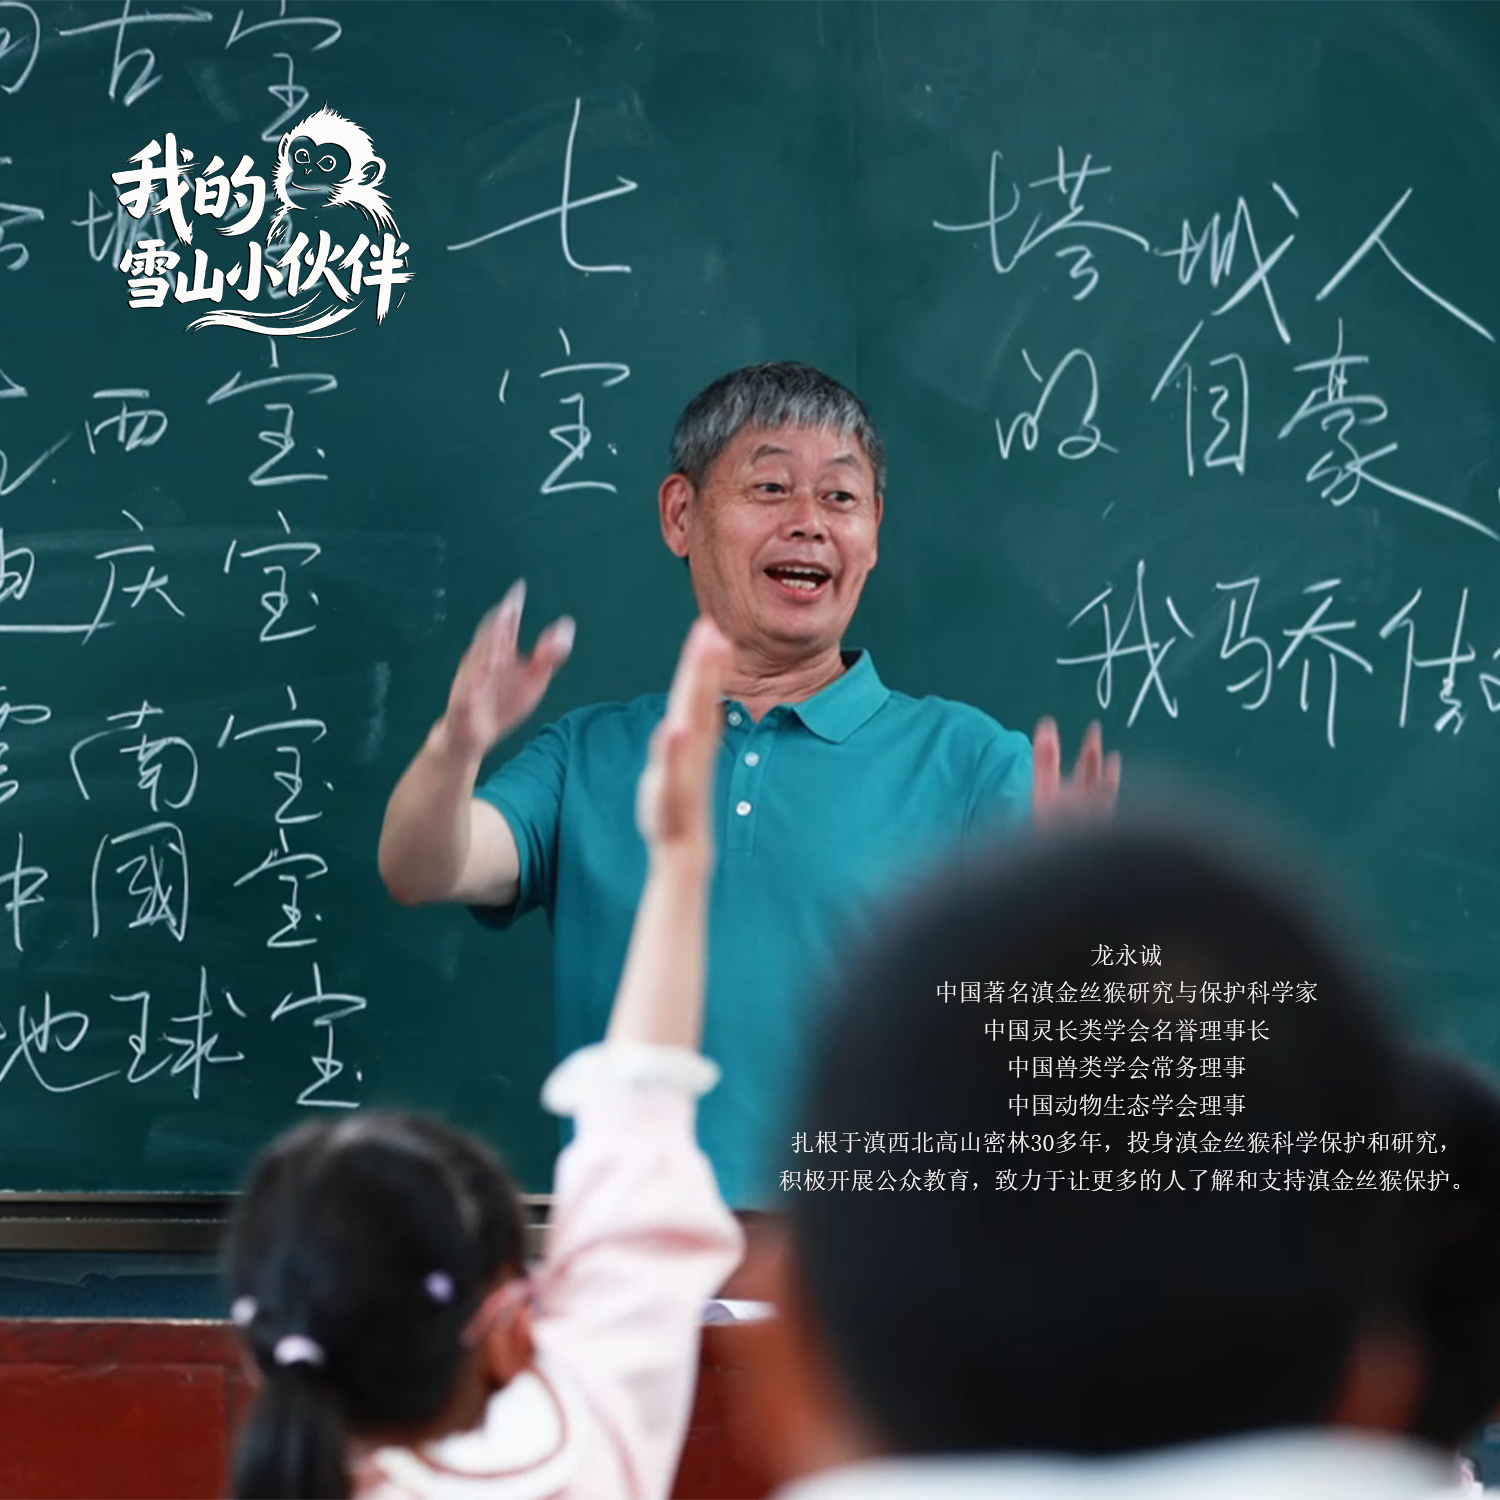 古宝
我的
雪山小伙伴
七
宝
塔城人
的自豪
我骄傲
西宝
迪庆宝
云南宝
中國宝
地球宝
龙永诚
中国著名滇金丝猴研究与保护科学家
中国灵长类学会名誉理事长
中国兽类学会常务理事
中国动物生态学会理事
扎根于滇西北高山密林30多年，投身滇金丝猴科学保护和研究，
积极开展公众教育，致力于让更多的人了解和支持滇金丝猴保护。